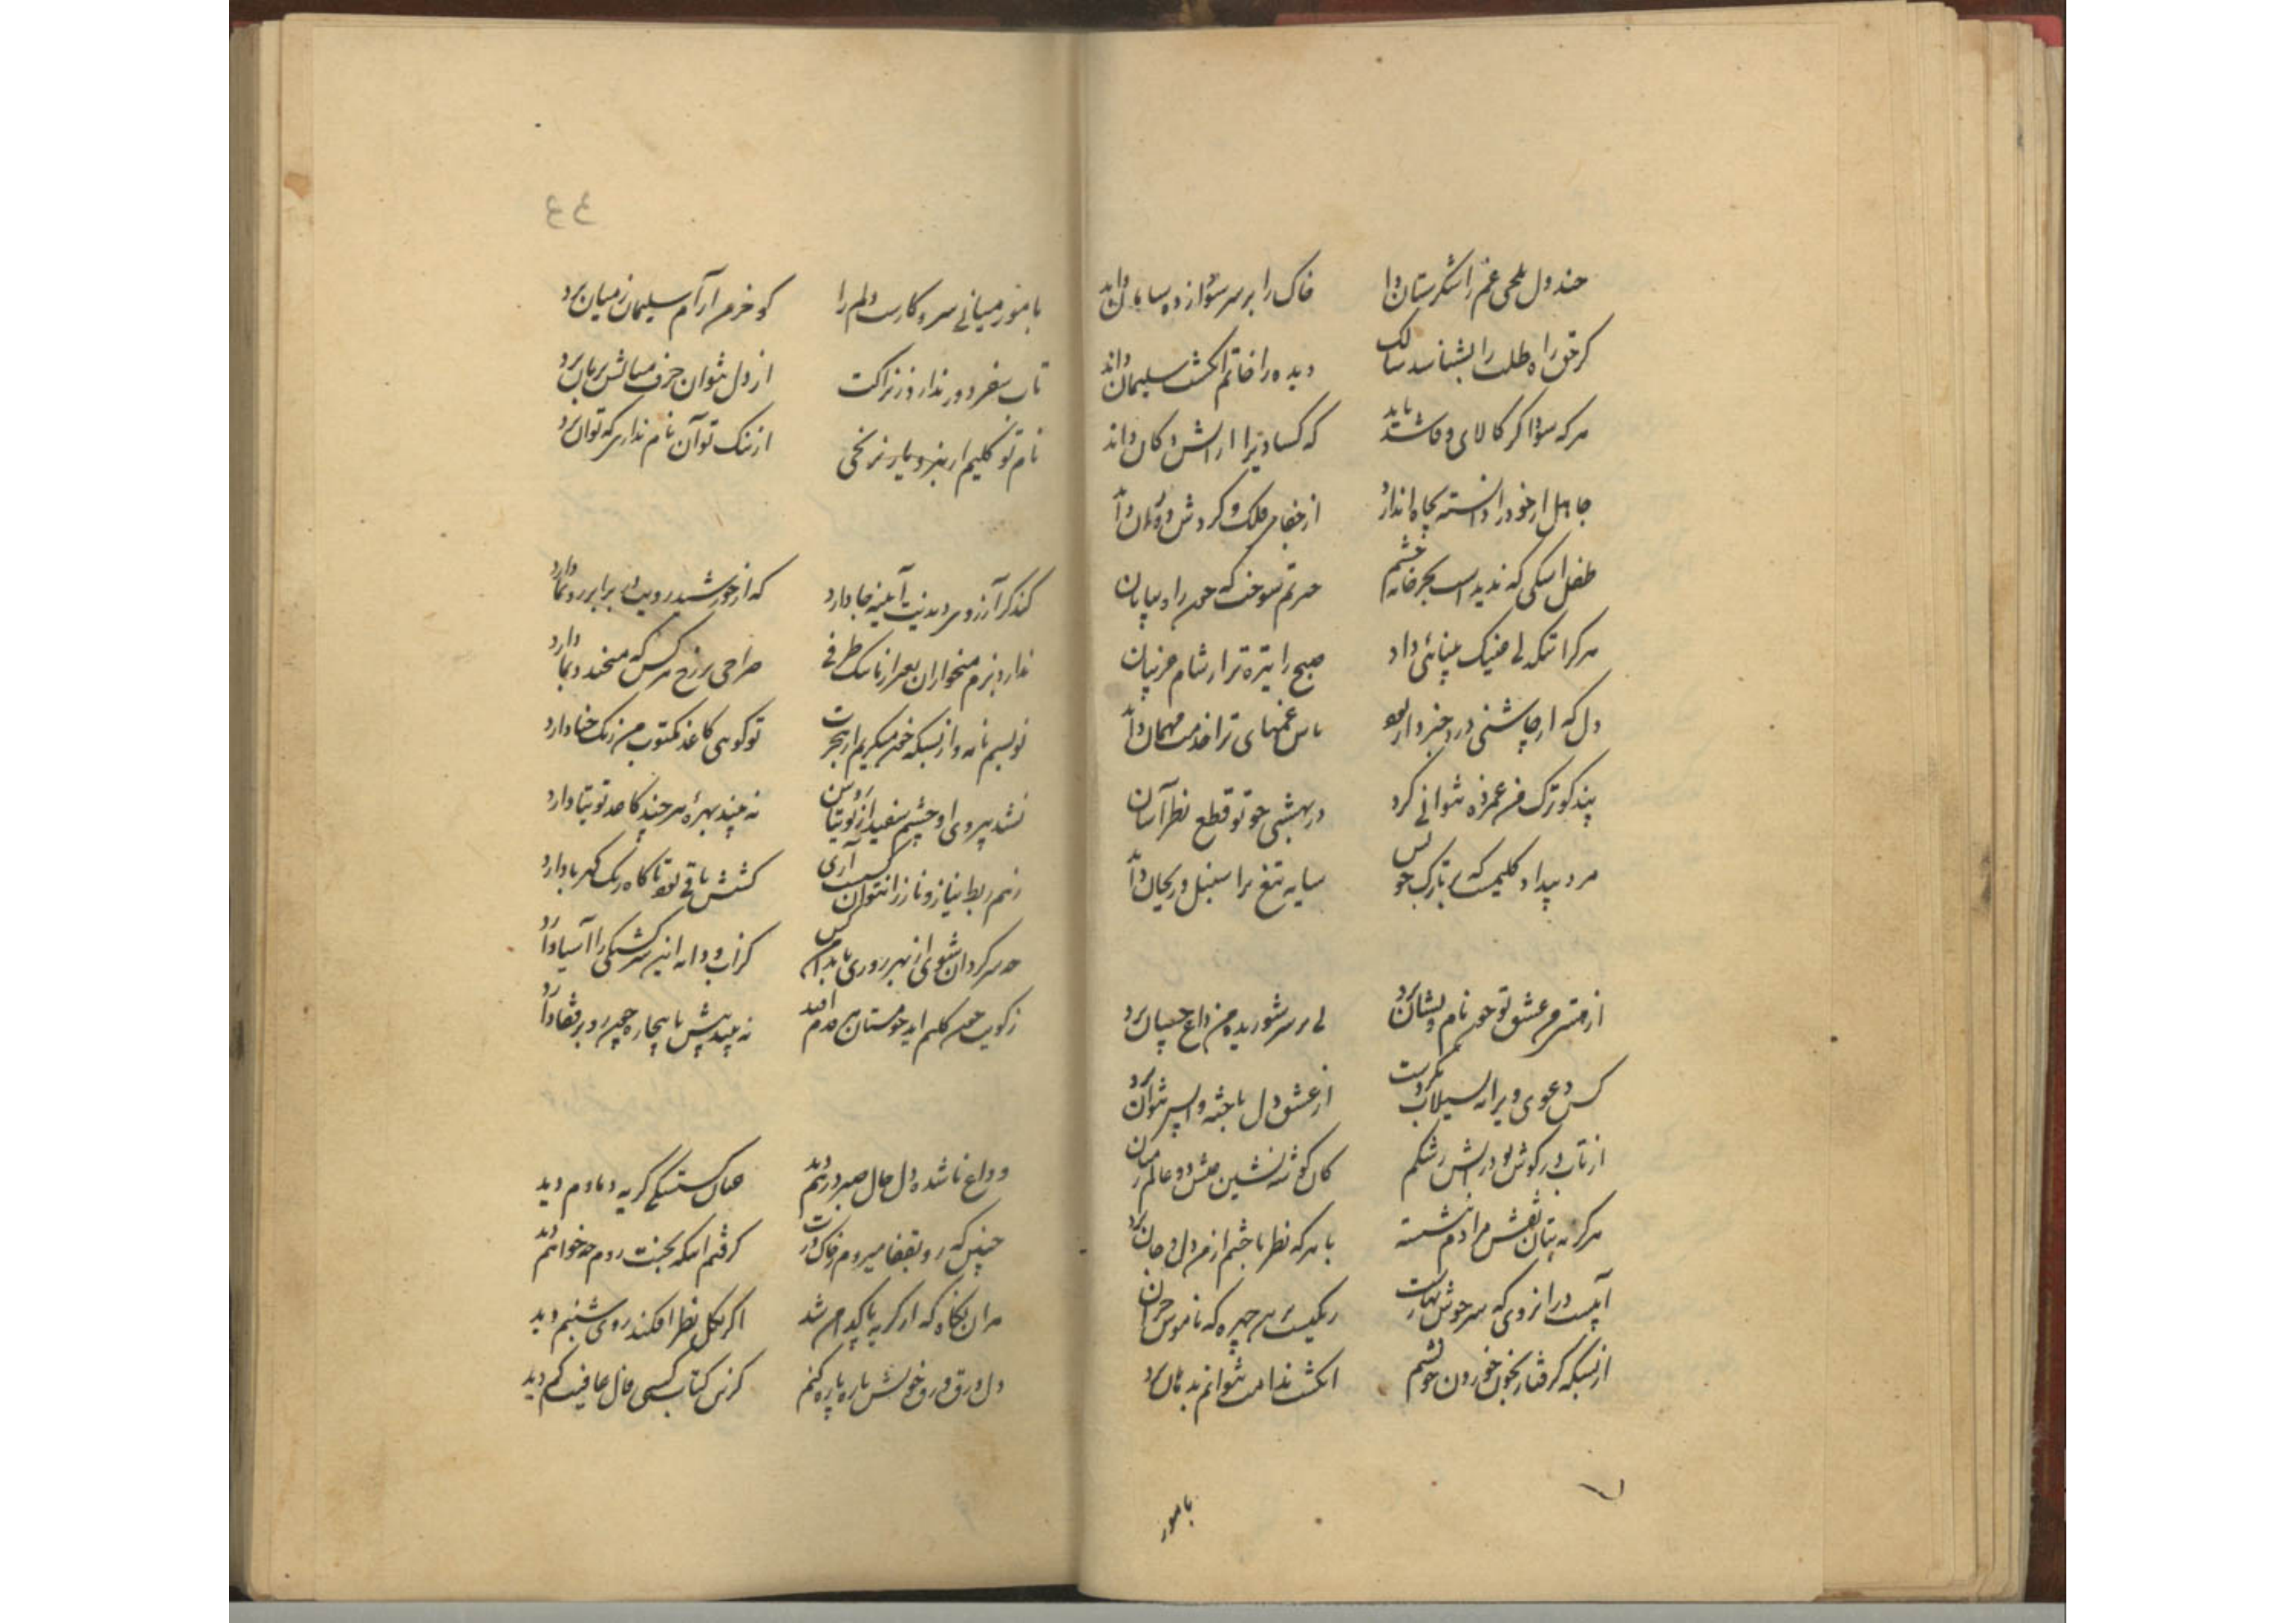 خندد دل تلخی غم را شکرستان داند خاک را بر سر سودازده سامان داند
گر حق راه طلب را بشناسد سالک دیده را خاتم انگشت سلیمان داند
هر که سوداگر کالای وفا شد باید که کسادیرا آرایش دکان داند
جاهل ار خود را دانسته بچاه اندازد از جفای فلک و گردش دوران داند
طفل اشکی که ندیدست بجز خانه چشم حیرتم سوخت که چون راه بیابان
هر کرا تنگدلی عینک بینائی داد صبح را تیره تر از شام غریبان
دل که از چاشنی درد خبردار بود پاس غمهای ترا خدمت مهمان داند
پندگو ترک من غمزده نتوانی کرد در بهشتی چو تو قطع نظر آسان
مرد بیداد کلیمست که بر تارک خویش سایه تیغ ترا سنبل و ریحان داند
از من شرم عشق تو چون نام و نشان برد بی بر سر شوریده من داغ چسپان برد
کس دعوی ویرانه بسیلاب نکردست از عشق دل باخته واپس نتوان برد
از تاب در گوش تو در آتش رشکم کان گوشه نشین عیش دو عالم ز میان
هرگز به بتان نقش مرادم ننشسته با هر که نظر باختم از من دل و جان برد
آبیست در آن روی که سرجوش بهارست رنگیست بر آن چهره که ناموس خزان
از بسکه گرفتار بخون خوردن خویشم انگشت ندامت نتوانم بدهان برد
بامور
با مور میانی سر و کارست دلم را کو خرمن آرام سلیمان ز میان برد
تاب سفر دور ندارد ز نزاکت از دل نتوان حرف میانش بزبان برد
نام تو کلیم ار نبرد یار نرنجی از ننگ تو آن نام ندارد که توان برد
کند گر آرزوی دیدنت آیینه جا دارد که از خورشید رویت در برابر رونما دارد
ندارد بزم میخواران بغیر از ما تنک ظرفی صراحی بر رخ هر کس که میخندد بما دارد
نویسم نامه و از بسکه خون میگریم از هجرت تو گویی کاغذ مکتوب من رنگ حنا دارد
نشد بیروی او چشم سفید از توتیا روشن نه بیند بهره هر چند کاغذ توتیا دارد
زهم ربط نیاز و ناز را نتوان گسست آری کشش باقی بود تا کاه رنگ کهربا دارد
چه سرگردان شوی از بهر روزی یاد دار این کس کز آب و دانه این سرگشتگی را آسیا دارد
ز کویت چون کلیم آید چو مستان هر قدم افتد نه بیند پیش پا بیچاره چون رو بر قفا دارد
وداع ناشده دل حال صبر درهم دید عنان گسستگی گریه دمادم دید
چنین که رو بقفا میروم ز خاک درت گرفتم اینکه بجنت روم چه خواهم دید
بر آن نگاه که از گریه پاکدامن شد اگر بگل نظر افکند روی شبنم دید
دل ورق ورق خویش پاره پاره کنم کزین کتاب کسی فال عافیت کم دید